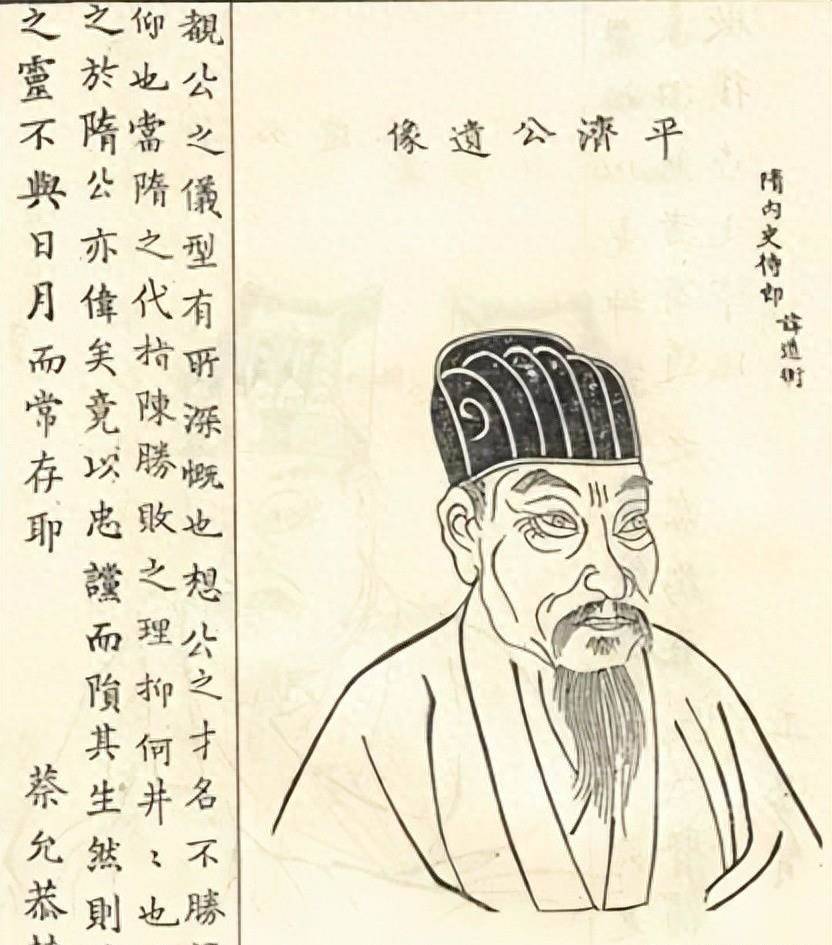 平濟公遺像
隋內史侍郎 諱道衡
觀公之儀型有所深慨也想公之才名不勝
仰也當隋之代指陳勝敗之理抑何井〻也
之於隋公亦偉矣竟以忠讜而隕其生然則
之靈不與日月而常存耶 蔡允恭